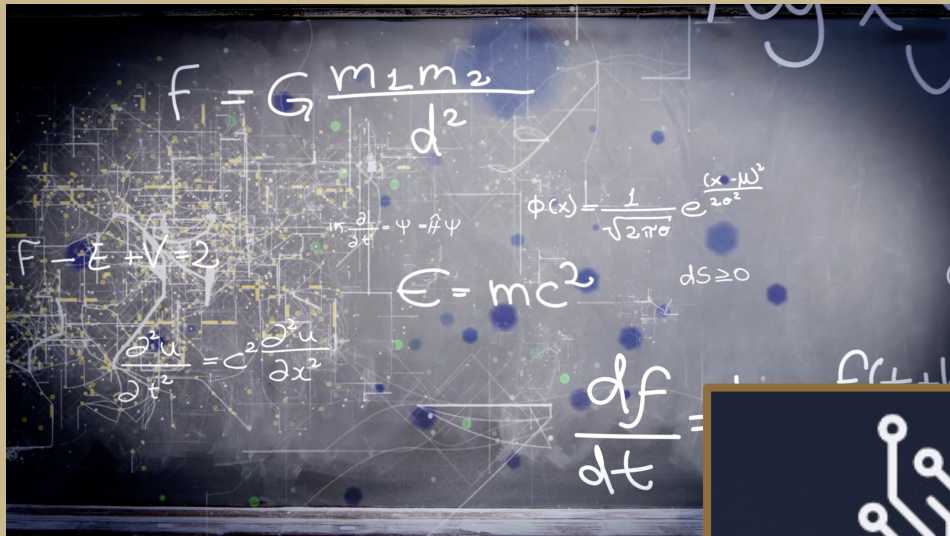 F = G m1m2 / d²
ϕ(x) = 1 / √2πσ e (x-μ)² / 2σ²
∂ / ∂t = Ψ = ĤΨ
F - E + V = 2
E = mc²
dS ≥ 0
∂²u / ∂t² = c² ∂²u / ∂x²
df / dt =